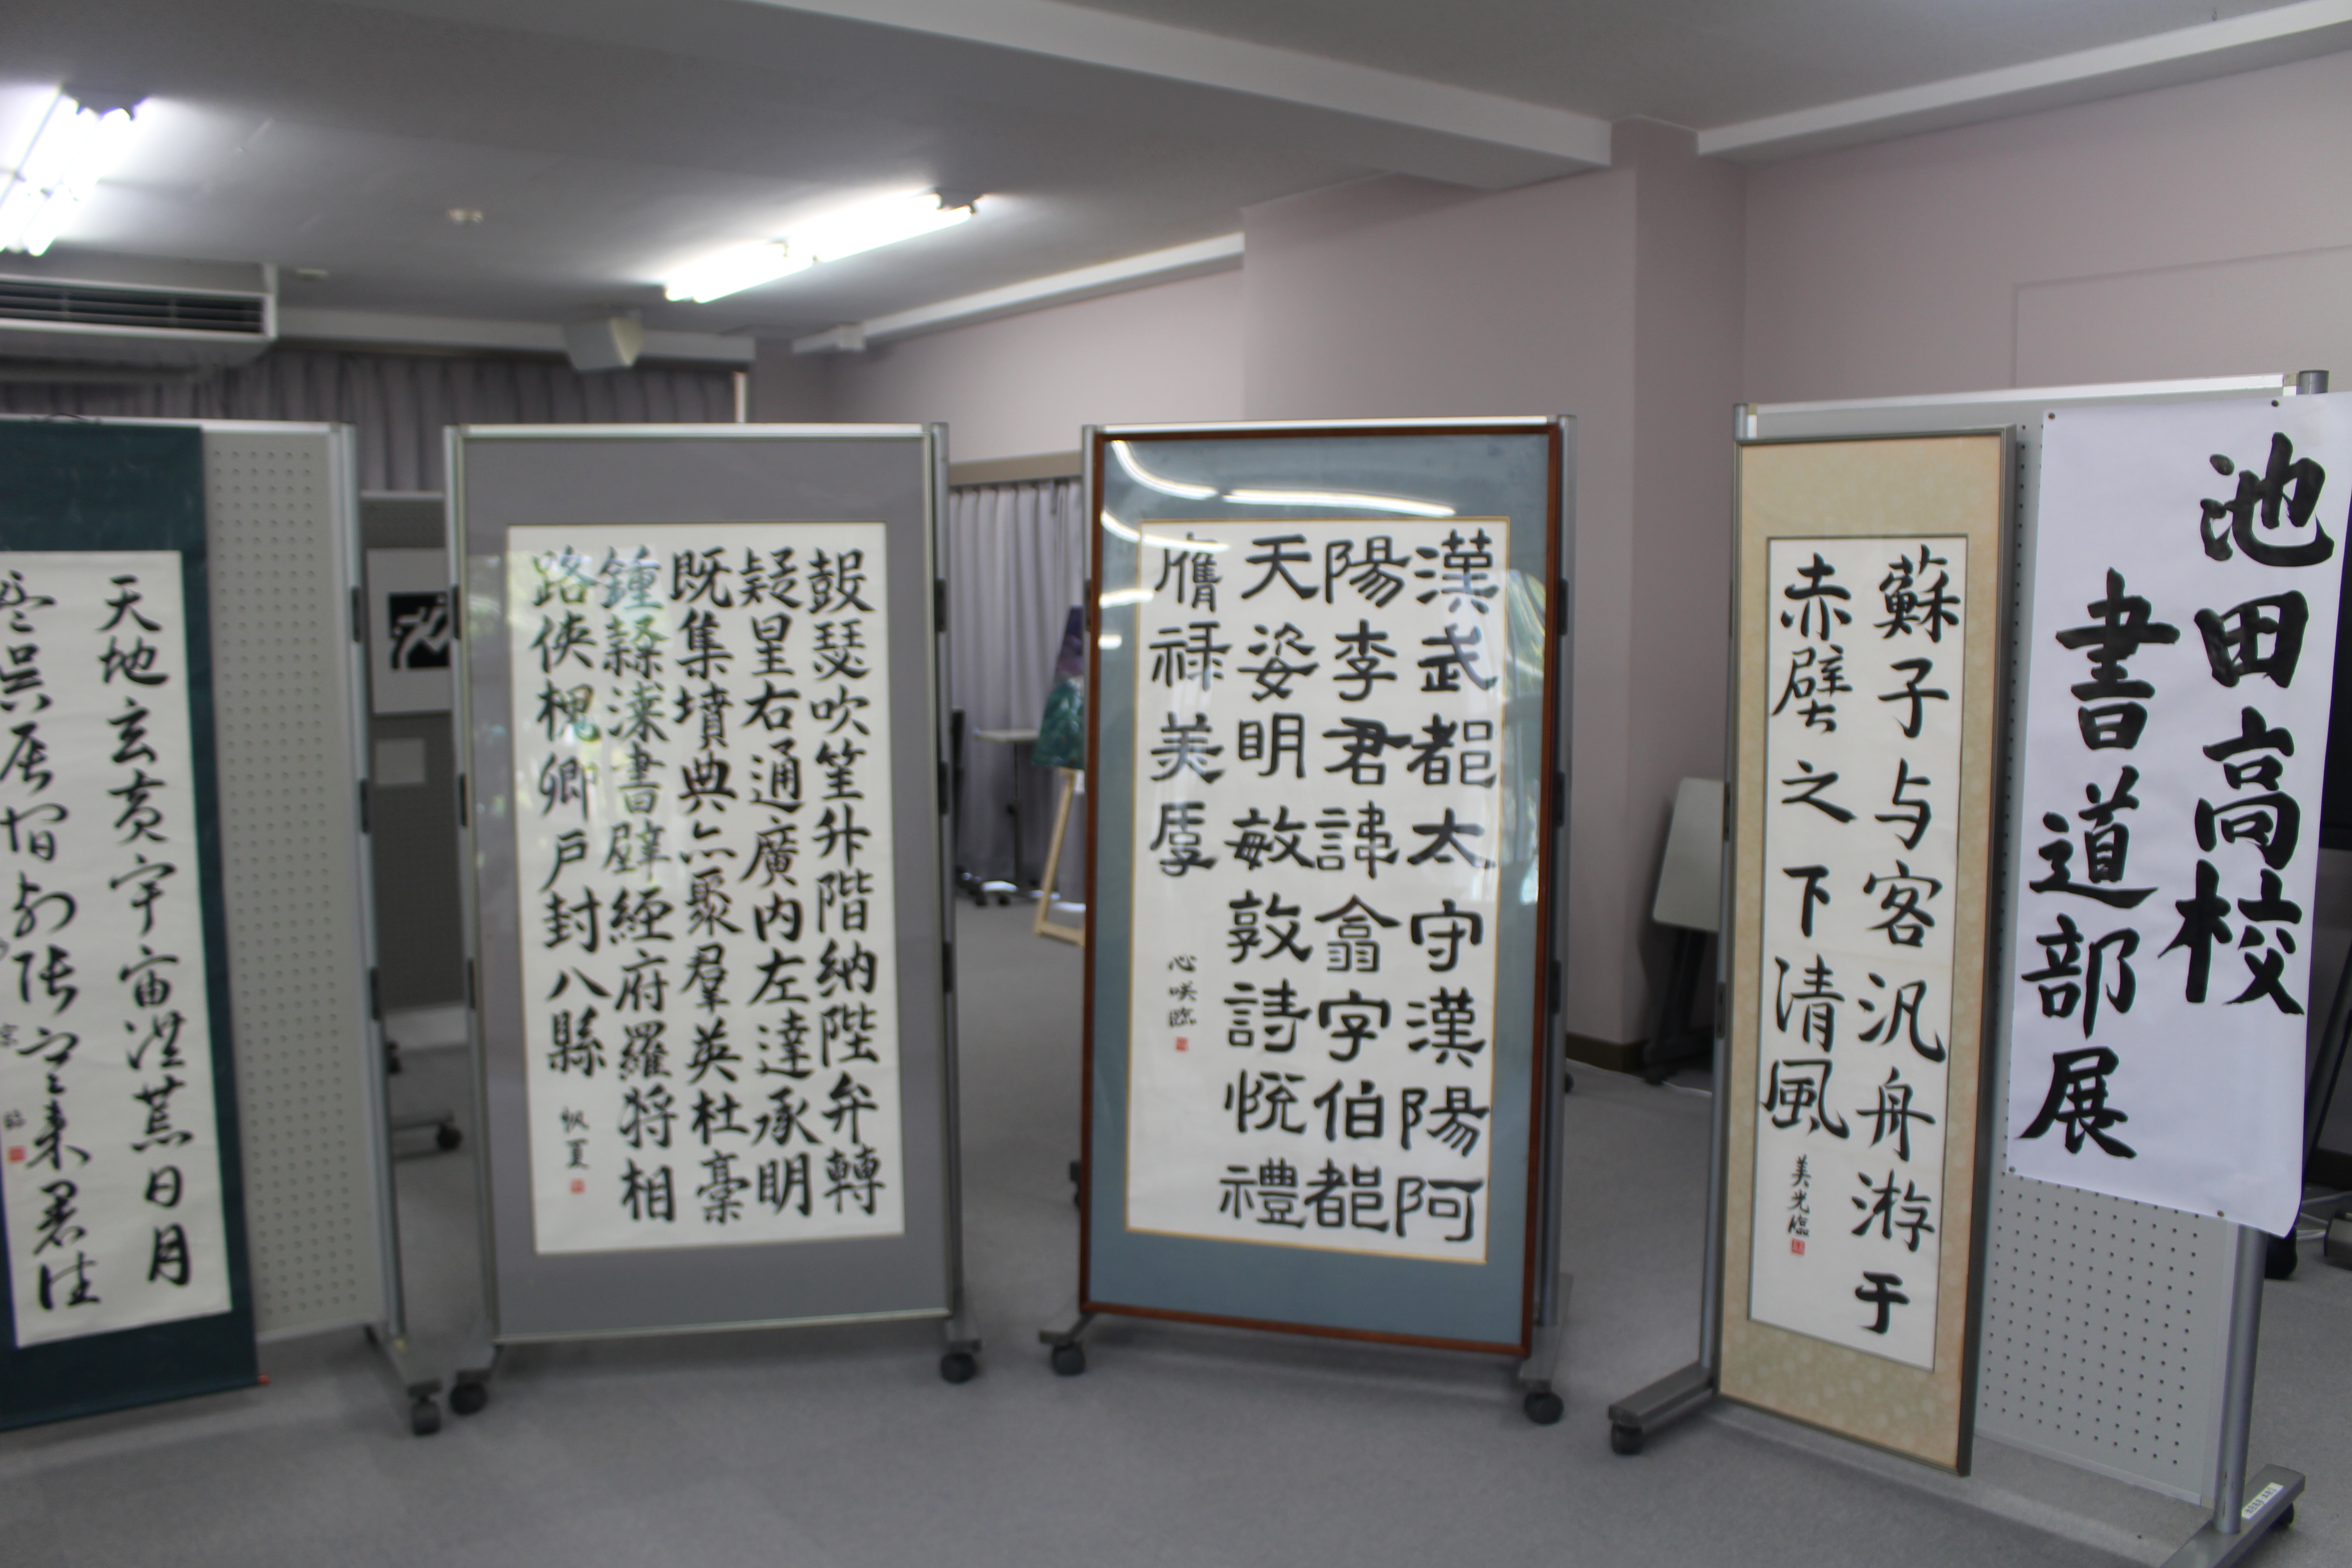 池田高校
書道部展
蘇子与客汎舟游于
赤壁之下清風
美光臨
漢武都太守漢陽阿
陽李君諱翕字伯都
天姿明敏敦詩悦禮
膺禄美厚
心咲臨
鼓瑟吹笙升階納陛弁轉
疑星右通廣内左達承明
既集墳典亦聚群英杜稾
鍾隸漆書壁経府羅将相
路侠槐卿戸封八縣
帆夏
天地玄黄宇宙洪荒日月
盈昃辰宿列張寒来暑往